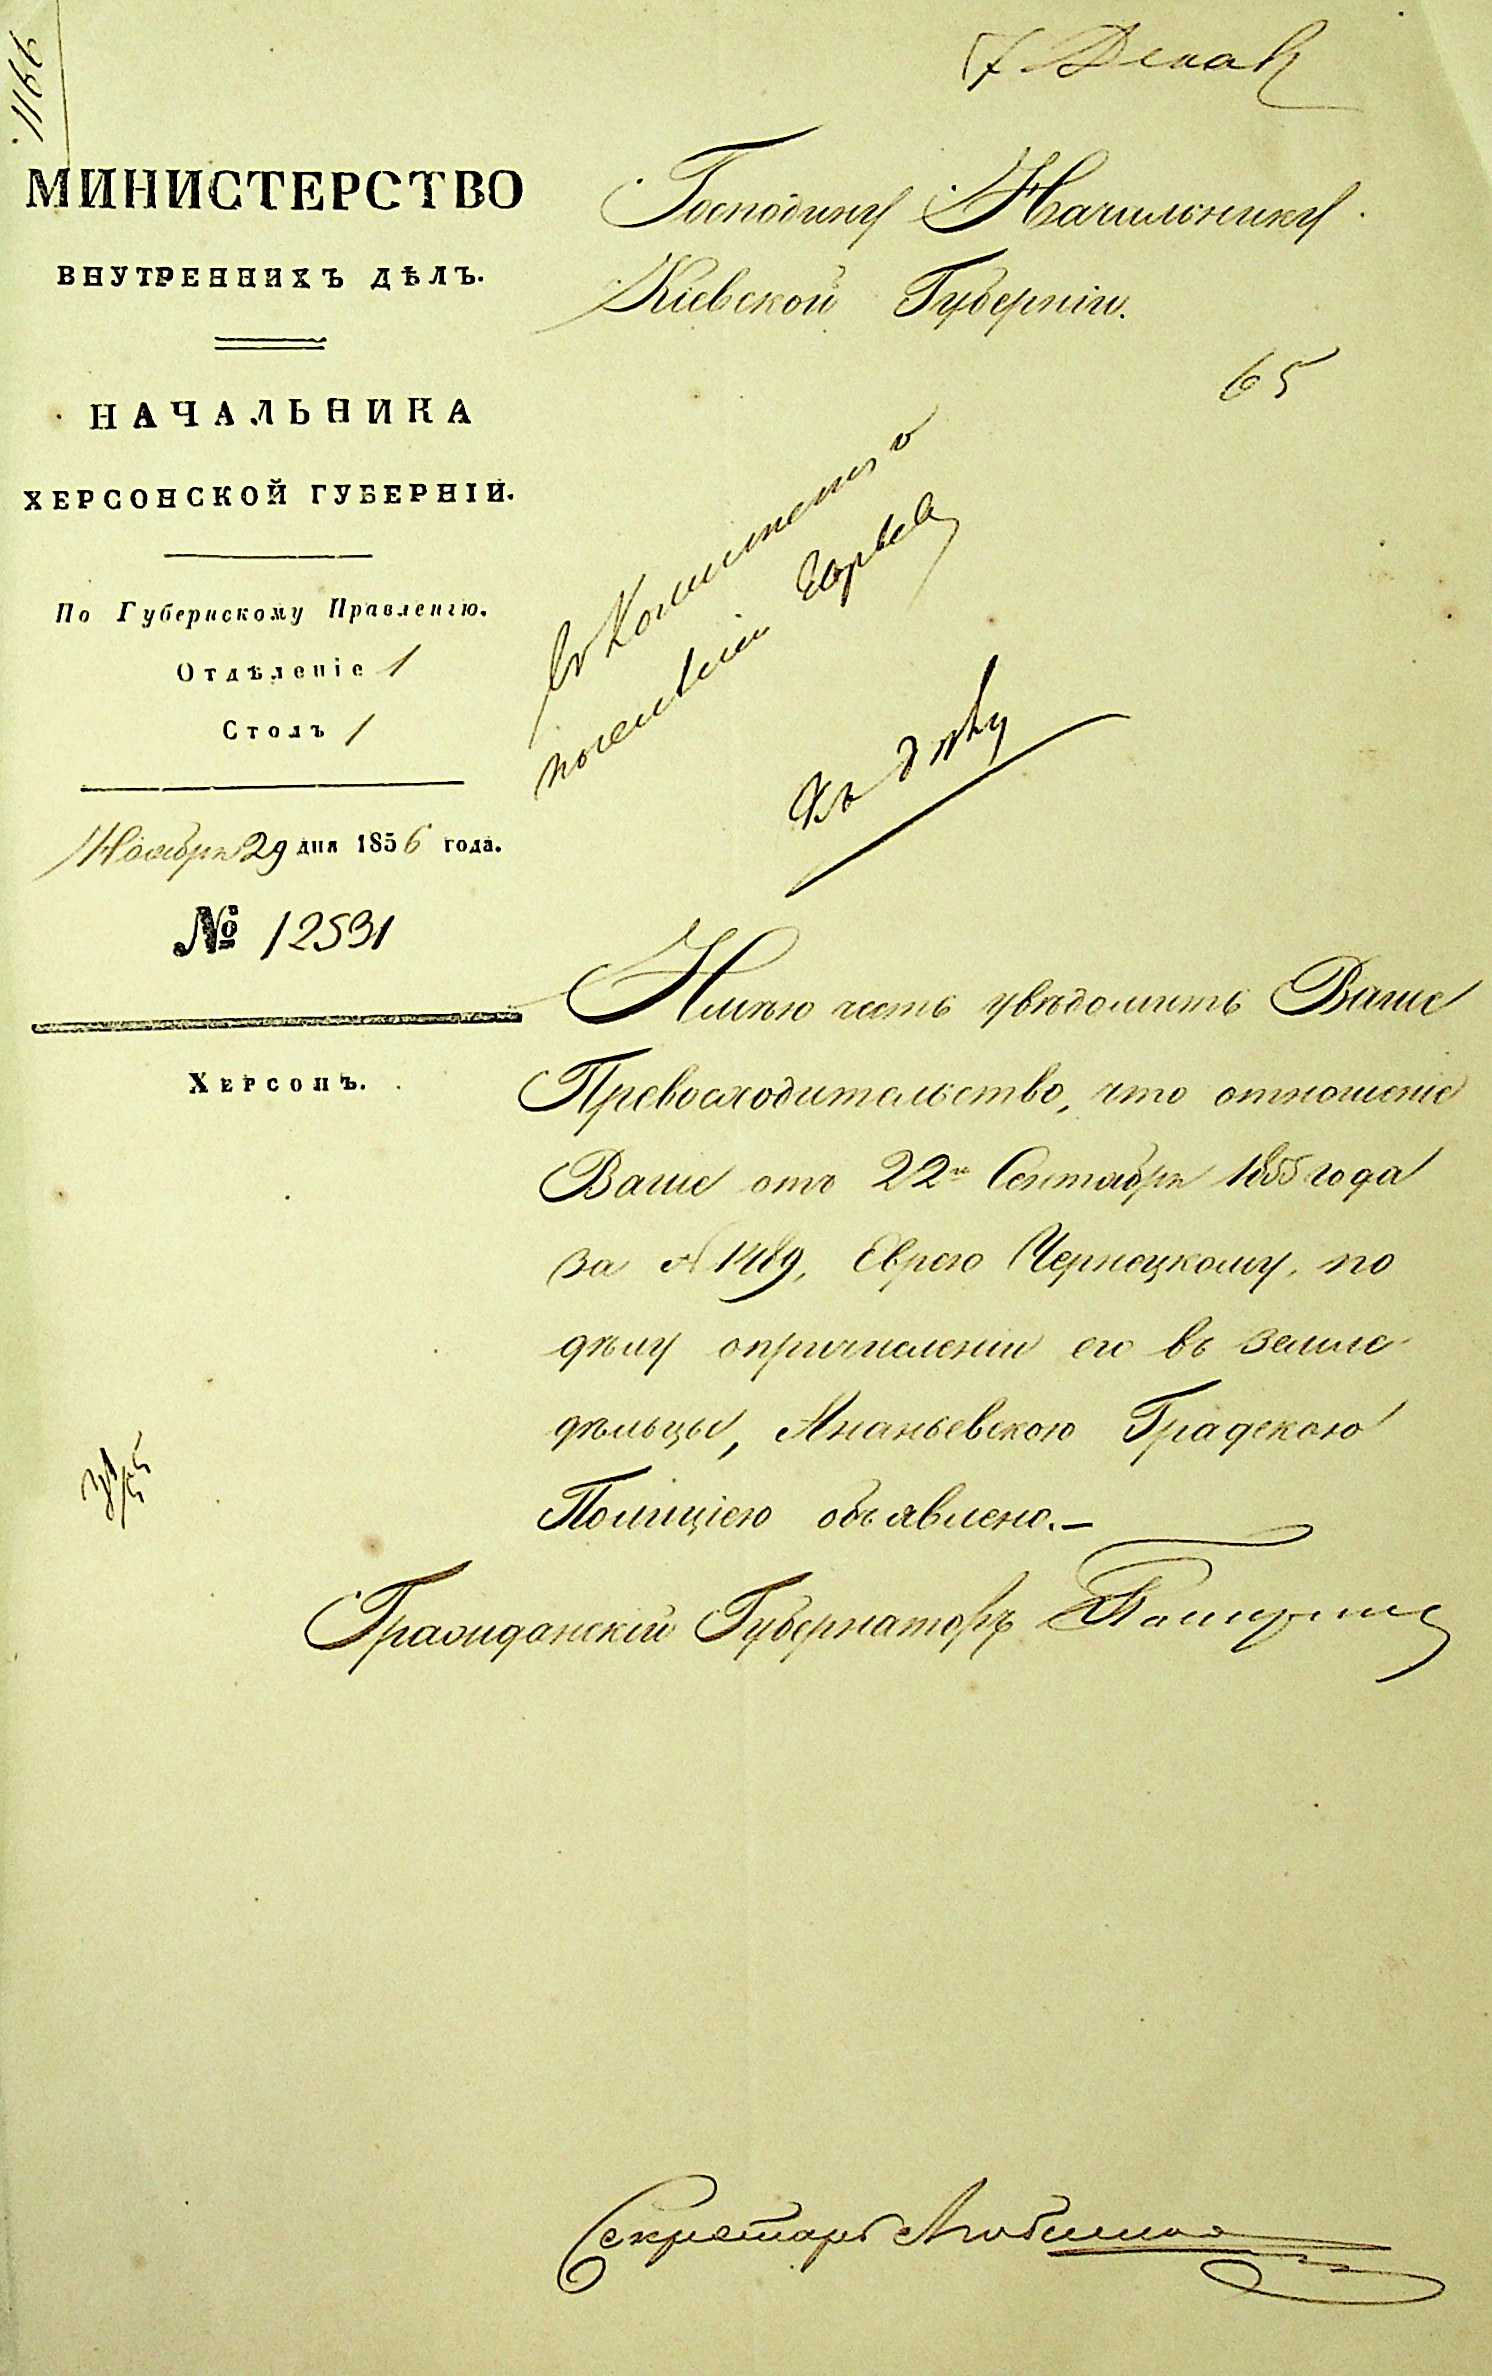 7 Декаб
МИНИСТЕРСТВО
ВНУТРЕННИХЪ ДѢЛЪ.
НАЧАЛЬНИКА
ХЕРСОНСКОЙ ГУБЕРНІИ.
По Губернскому Правленію.
Отдѣленіе 1
Столъ 1
Ноября 29 дня 1856 года.
№ 12531
Херсонъ.
Господину Начальнику
Кіевской Губерніи.
65
къ дѣлу
Имѣю честь увѣдомить Ваше
Превосходительство, что отношеніе
Ваше отъ 22го Сентября 1855 года
за № 1489, Еврею Чернецкому, по
дѣлу опричисленіи его въ земле-
дѣльцы, Ананьевскою Градскою
Полиціею объявлено.—
Гражданскій Губернаторъ
Секретарь